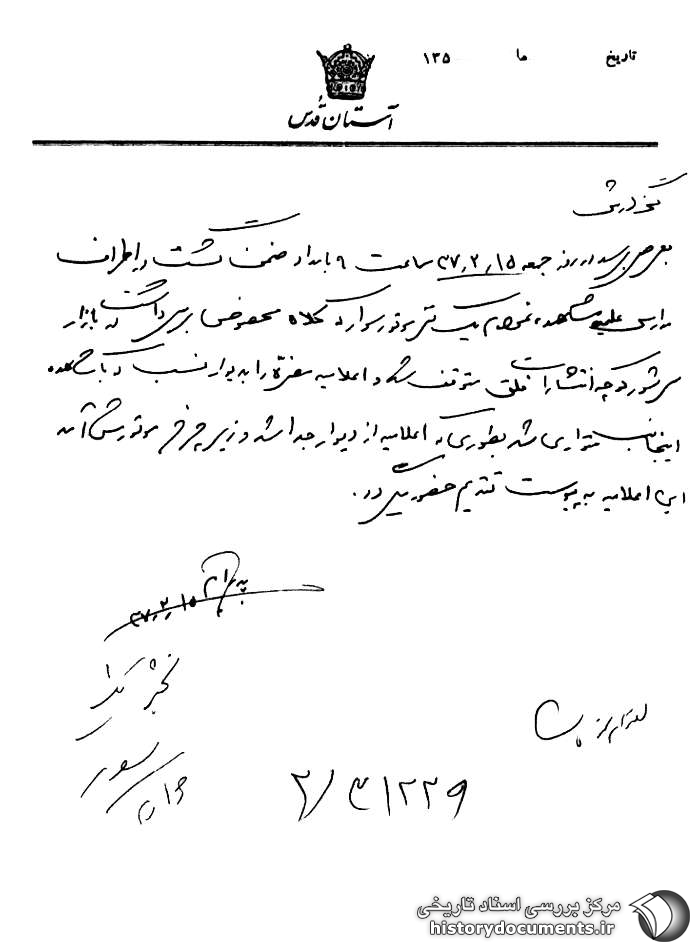 تاریخ ما ۱۳۵
آستان قدس
گزارش
بعرض میرساند روز جمعه ۳۷٫۲٫۱۵ ساعت ۹ بامداد ضمن گشت در اطراف
مدارس علمیه مشهد، یک نفر موتور سوار که کلاه مخصوص بسر داشت در بازار
سرشور کوچه انتشارات متوقف شد و اعلامیه مضره را بدیوار نسب که با مشاهده
اینجانب متواری شد بطوری که اعلامیه از دیوار جدا شد و زیر چرخ موتورش آمد
این اعلامیه به پیوست تقدیم حضور میگردد.
۳۷٫۲٫۱۵
۲/۳۱۲۲۹
مرکز بررسی اسناد تاریخی
historydocuments.ir